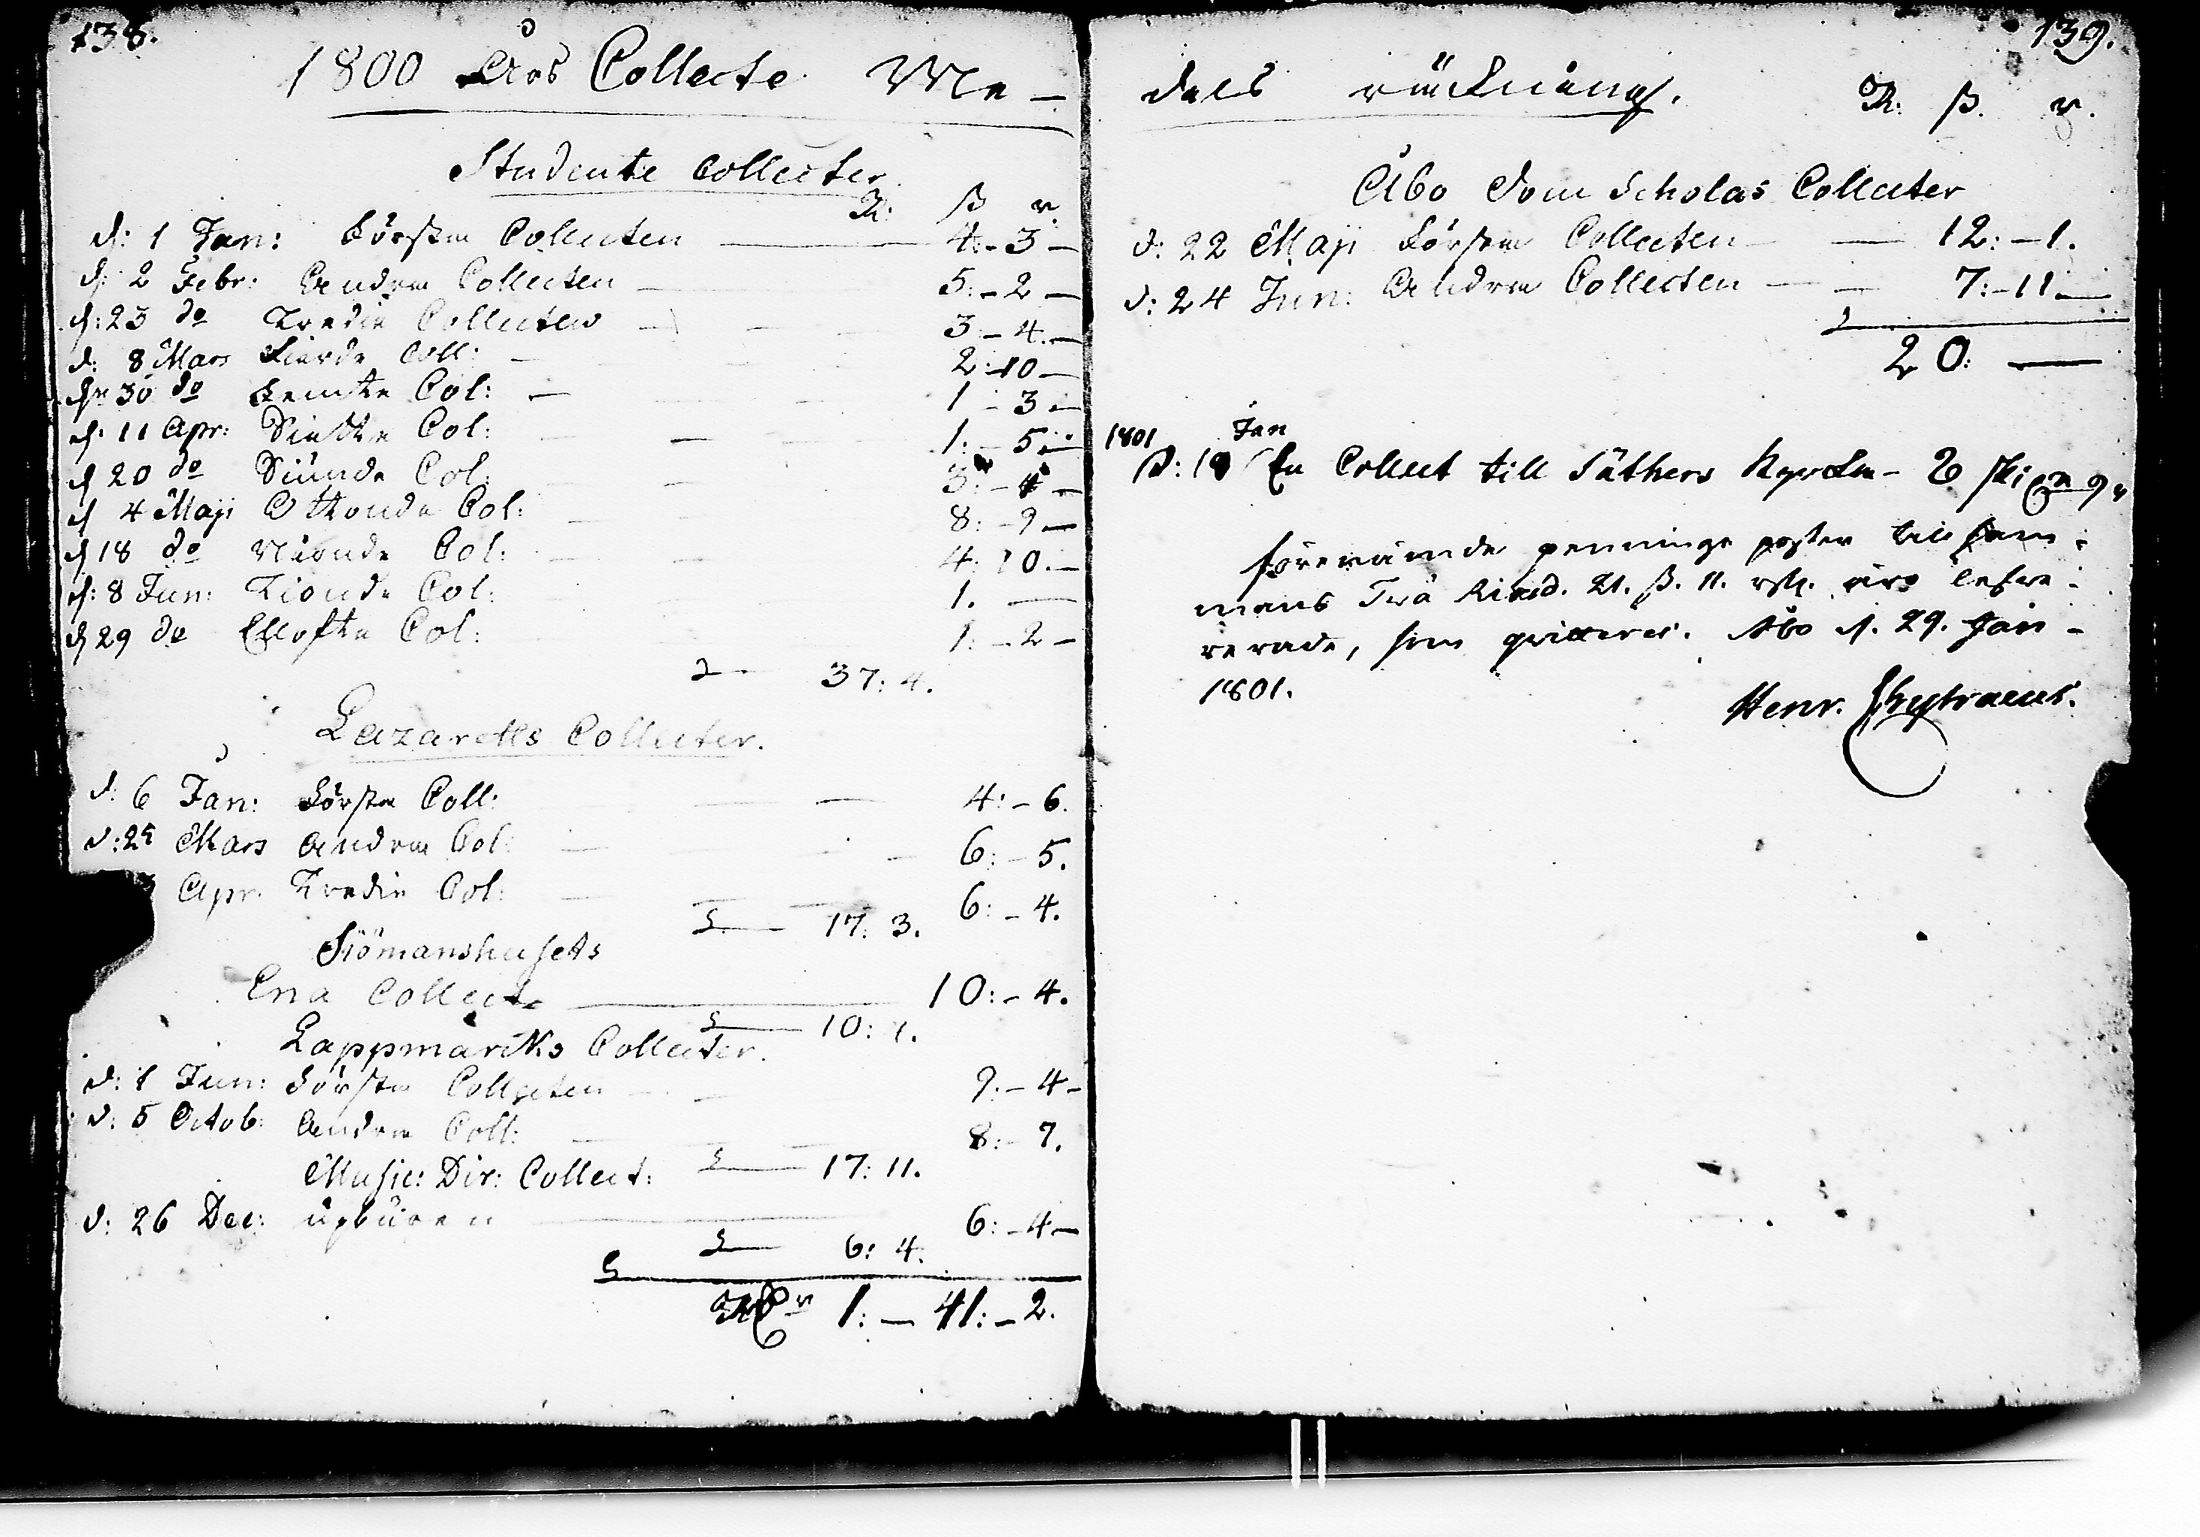 138.
1800 Års Collecte Me-
Studente Collecter
R: ß r.
d: 1 Jan: Förste Collecten 4:-3-
d: 2 Febr: Andra Collecten 5:-2-
d: 23 do Tredie Collecten 3:-4.-
d: 8 Mars Fierde Coll: 2:-10-
dn 30 do Femte Col: 1-3-
d. 11 Apr: Siette Col: 1:-5-
d 20 do Siunde Col: 3:-4-
d 4 Maji Ottonde Col: 8:-9-
d 18 do Nionde Col: 4:10.-
d: 8 Jun: Tionde Col: 1.-
d 29 do Ellofte Col: 1:-2-
37:4.
Lazaretts Collecter.
d: 6 Jan: Förste Coll: 4:-6.
d: 25 Mars Andra Col: 6:-5.
Apr. Tredie Col: 6:-4.
S 17:3.
Siömanshusets
Ena Collect 10:-4.
S 10:4.
Lappmarks Collecter.
d: 1 Jun: Förste Collecten 9:-4-
d: 5 Octob: Andra Coll: 8:-7.
S 17:11.
Music: Dir: Collect:
d: 26 Dec: upburen 6:-4-
S 6:4.
S
1:-41:-2.
139.
dels räckning.
R: ß. r.
Åbo Dom Scholas Collecter
d: 22 Maji Förste Collecten 12:-1.
d: 24 Jun: Andra Collecten 7:-11-
S
20:-
1801 Jan
D: 18 En Collect till Säthers Kyrka-
förenämde penninge poster tillsam-
mans Två Riksd. 21. ß. 11. rst. äro lefve-
rerade, som qvitteres. Åbo d. 29. Jan-
1801.
Henr. Chytraeus.